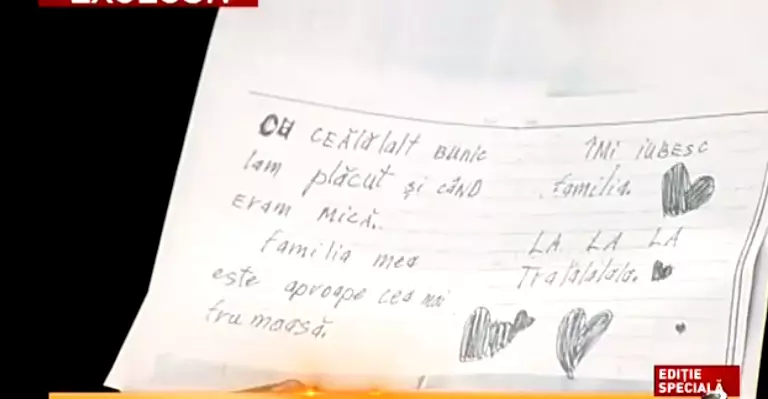 EXCLUSIV
CU CEĂlălalt BUNIC
lam plăcut și CÂND
ERAM MICĂ.
Familia mea
este aproape cea mai
frumoasă.
ÎMI IUBESC
familia.
LA LA LA
Tralalalala.
EDIȚIE
SPECIALĂ